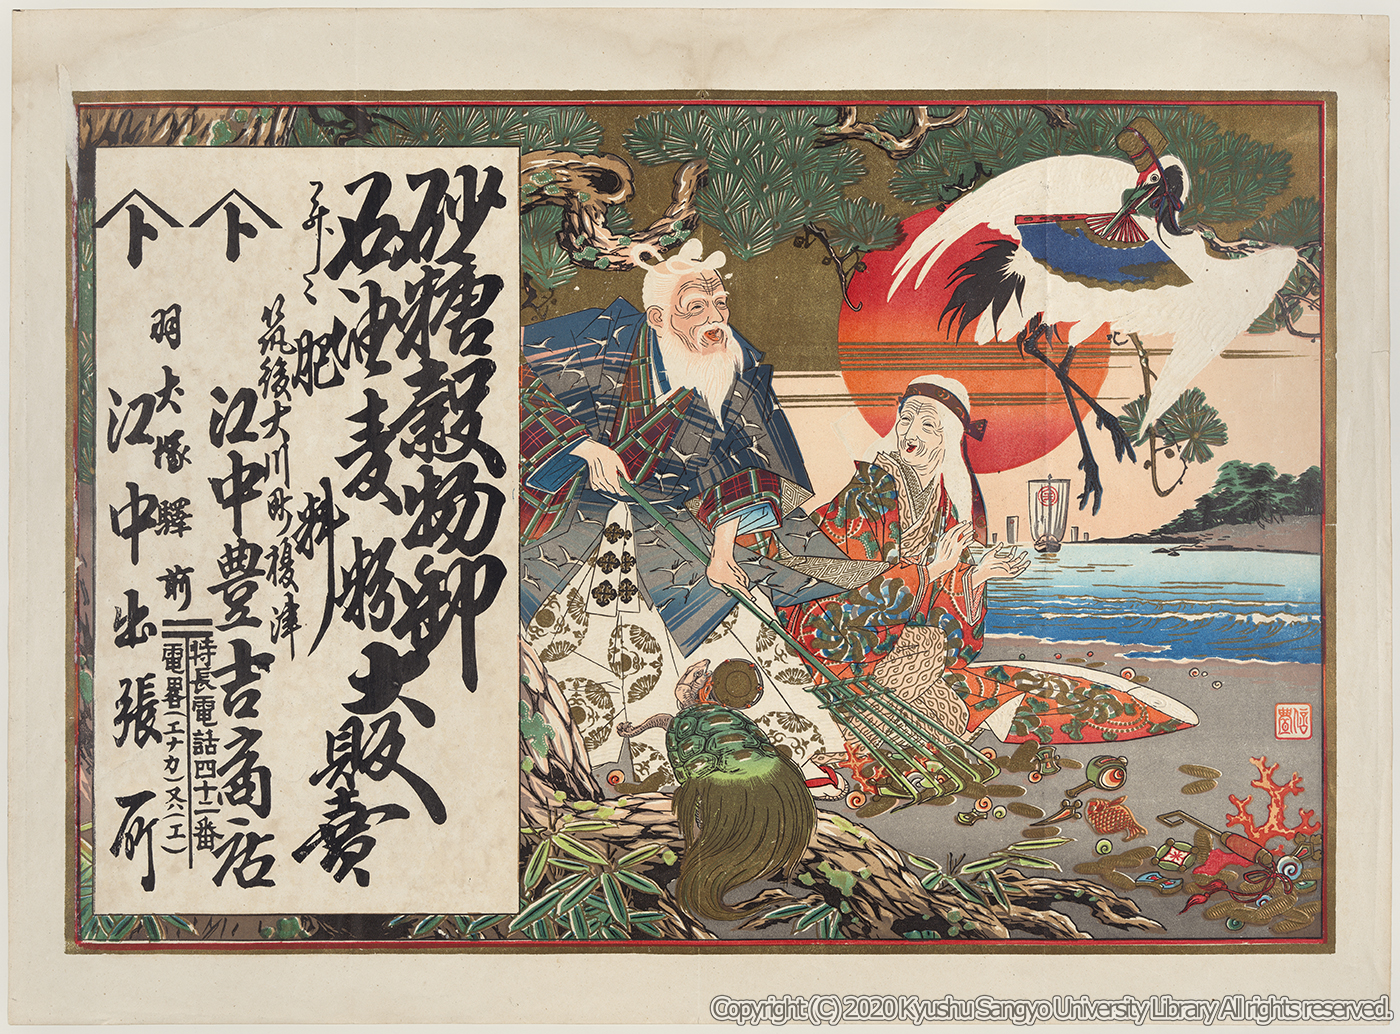 砂糖穀物卸
石油麦粉大販賣
肥料
筑後大川町榎津
江中豊吉商店
特長電話四十二番
電畧(エナカ)又ハ(エ)
羽犬塚驛前
江中出張所
卜
卜
Copyright (C) 2020 Kyushu Sangyo University Library All rights reserved.